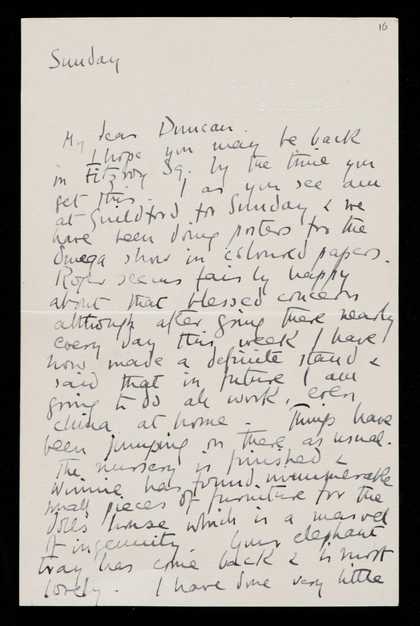 16
Sunday
My dear Duncan.
I hope you may be back
in Fitzroy Sq. by the time you
get this. I as you see am
at Guildford for Sunday & we
have been doing posters for the
Omega show in coloured papers.
Roger seems fairly happy
about that blessed concern
although after going there nearly
every day this week I have
now made a definite stand &
said that in future I am
going to do all work, even
china at home - Things have
been jumping on there as usual.
The nursery is finished &
Winnie has found innumerable
small pieces of furniture for the
dolls house which is a marvel
of ingenuity. Your elephant
tray has come back & is most
lovely. I have done very little